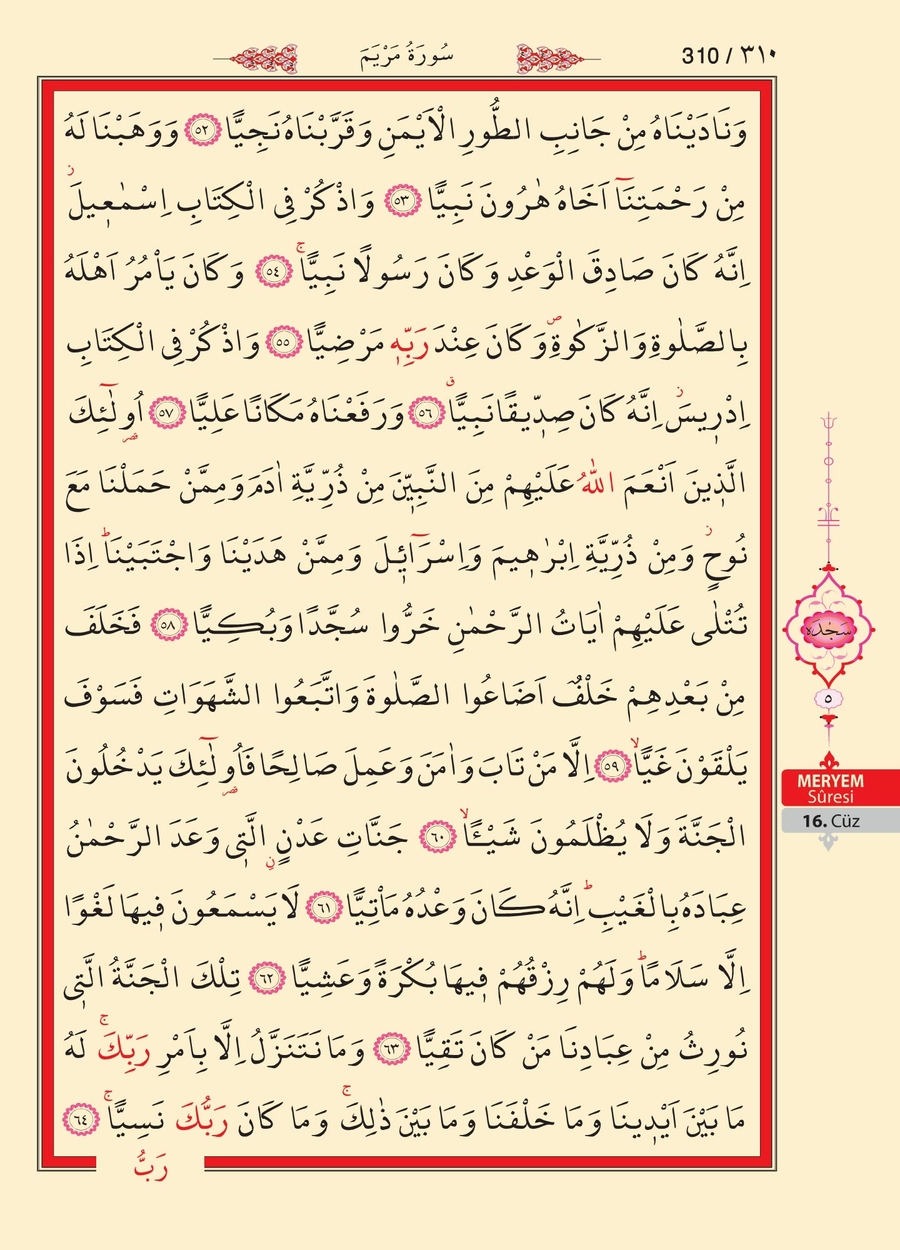 310 / ٣١٠
سُورَةُ مَرْيَمَ
وَنَادَيْنَاهُ مِنْ جَانِبِ الطُّورِ الْاَيْمَنِ وَقَرَّبْنَاهُ نَجِيًّا ﴿٥٢﴾ وَوَهَبْنَا لَهُ
مِنْ رَحْمَتِنَٓا اَخَاهُ هٰرُونَ نَبِيًّا ﴿٥٣﴾ وَاذْكُرْ فِى الْكِتَابِ اِسْمٰع۪يلَۘ
اِنَّهُ كَانَ صَادِقَ الْوَعْدِ وَكَانَ رَسُولًا نَبِيًّاۚ ﴿٥٤﴾ وَكَانَ يَاْمُرُ اَهْلَهُ
بِالصَّلٰوةِ وَالزَّكٰوةِۖ وَكَانَ عِنْدَ رَبِّه۪ مَرْضِيًّا ﴿٥٥﴾ وَاذْكُرْ فِى الْكِتَابِ
اِدْر۪يسَۘ اِنَّهُ كَانَ صِدّ۪يقًا نَبِيًّاۗ ﴿٥٦﴾ وَرَفَعْنَاهُ مَكَانًا عَلِيًّا ﴿٥٧﴾ اُو۬لٰٓئِكَ
الَّذ۪ينَ اَنْعَمَ اللّٰهُ عَلَيْهِمْ مِنَ النَّبِيّ۪نَ مِنْ ذُرِّيَّةِ اٰدَمَ وَمِمَّنْ حَمَلْنَا مَعَ
نُوحٍۘ وَمِنْ ذُرِّيَّةِ اِبْرٰه۪يمَ وَاِسْرَٓائ۪لَ وَمِمَّنْ هَدَيْنَا وَاجْتَبَيْنَاۜ اِذَا
تُتْلٰى عَلَيْهِمْ اٰيَاتُ الرَّحْمٰنِ خَرُّوا سُجَّدًا وَبُكِيًّا ﴿٥٨﴾ فَخَلَفَ
مِنْ بَعْدِهِمْ خَلْفٌ اَضَاعُوا الصَّلٰوةَ وَاتَّبَعُوا الشَّهَوَاتِ فَسَوْفَ
يَلْقَوْنَ غَيًّاۙ ﴿٥٩﴾ اِلَّا مَنْ تَابَ وَاٰمَنَ وَعَمِلَ صَالِحًا فَاُو۬لٰٓئِكَ يَدْخُلُونَ
الْجَنَّةَ وَلَا يُظْلَمُونَ شَيْـًٔاۙ ﴿٦٠﴾ جَنَّاتِ عَدْنٍۨ الَّت۪ى وَعَدَ الرَّحْمٰنُ
عِبَادَهُ بِالْغَيْبِۜ اِنَّهُ كَانَ وَعْدُهُ مَاْتِيًّا ﴿٦١﴾ لَا يَسْمَعُونَ ف۪يهَا لَغْوًا
اِلَّا سَلَامًاۜ وَلَهُمْ رِزْقُهُمْ ف۪يهَا بُكْرَةً وَعَشِيًّا ﴿٦٢﴾ تِلْكَ الْجَنَّةُ الَّت۪ى
نُورِثُ مِنْ عِبَادِنَا مَنْ كَانَ تَقِيًّا ﴿٦٣﴾ وَمَا نَتَنَزَّلُ اِلَّا بِاَمْرِ رَبِّكَۚ لَهُ
مَا بَيْنَ اَيْد۪ينَا وَمَا خَلْفَنَا وَمَا بَيْنَ ذٰلِكَۚ وَمَا كَانَ رَبُّكَ نَسِيًّاۚ ﴿٦٤﴾
رَبُّ
سجده
٥
MERYEM
Sûresi
16. Cüz